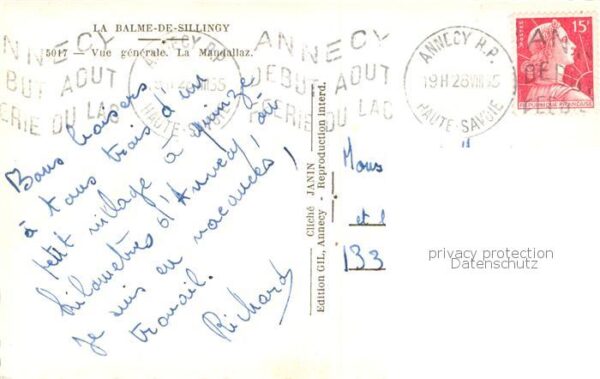 LA BALME-DE-SILLINGY
5017 - Vue générale. La Mandallaz.
ANNECY
DEBUT AOUT
FEERIE DU LAC
ANNECY R.P.
19H 26 VIII 55
HAUTE-SAVOIE
15F
REPUBLIQUE FRANÇAISE
Bons baisers
à tous trois d'un
petit village à quinze
kilomètres d'Annecy où
je suis en vacances !
travail.
Richard
Cliché JANIN
Edition GIL, Annecy - Reproduction interd.
Mous
et l
133
privacy protection
Datenschutz